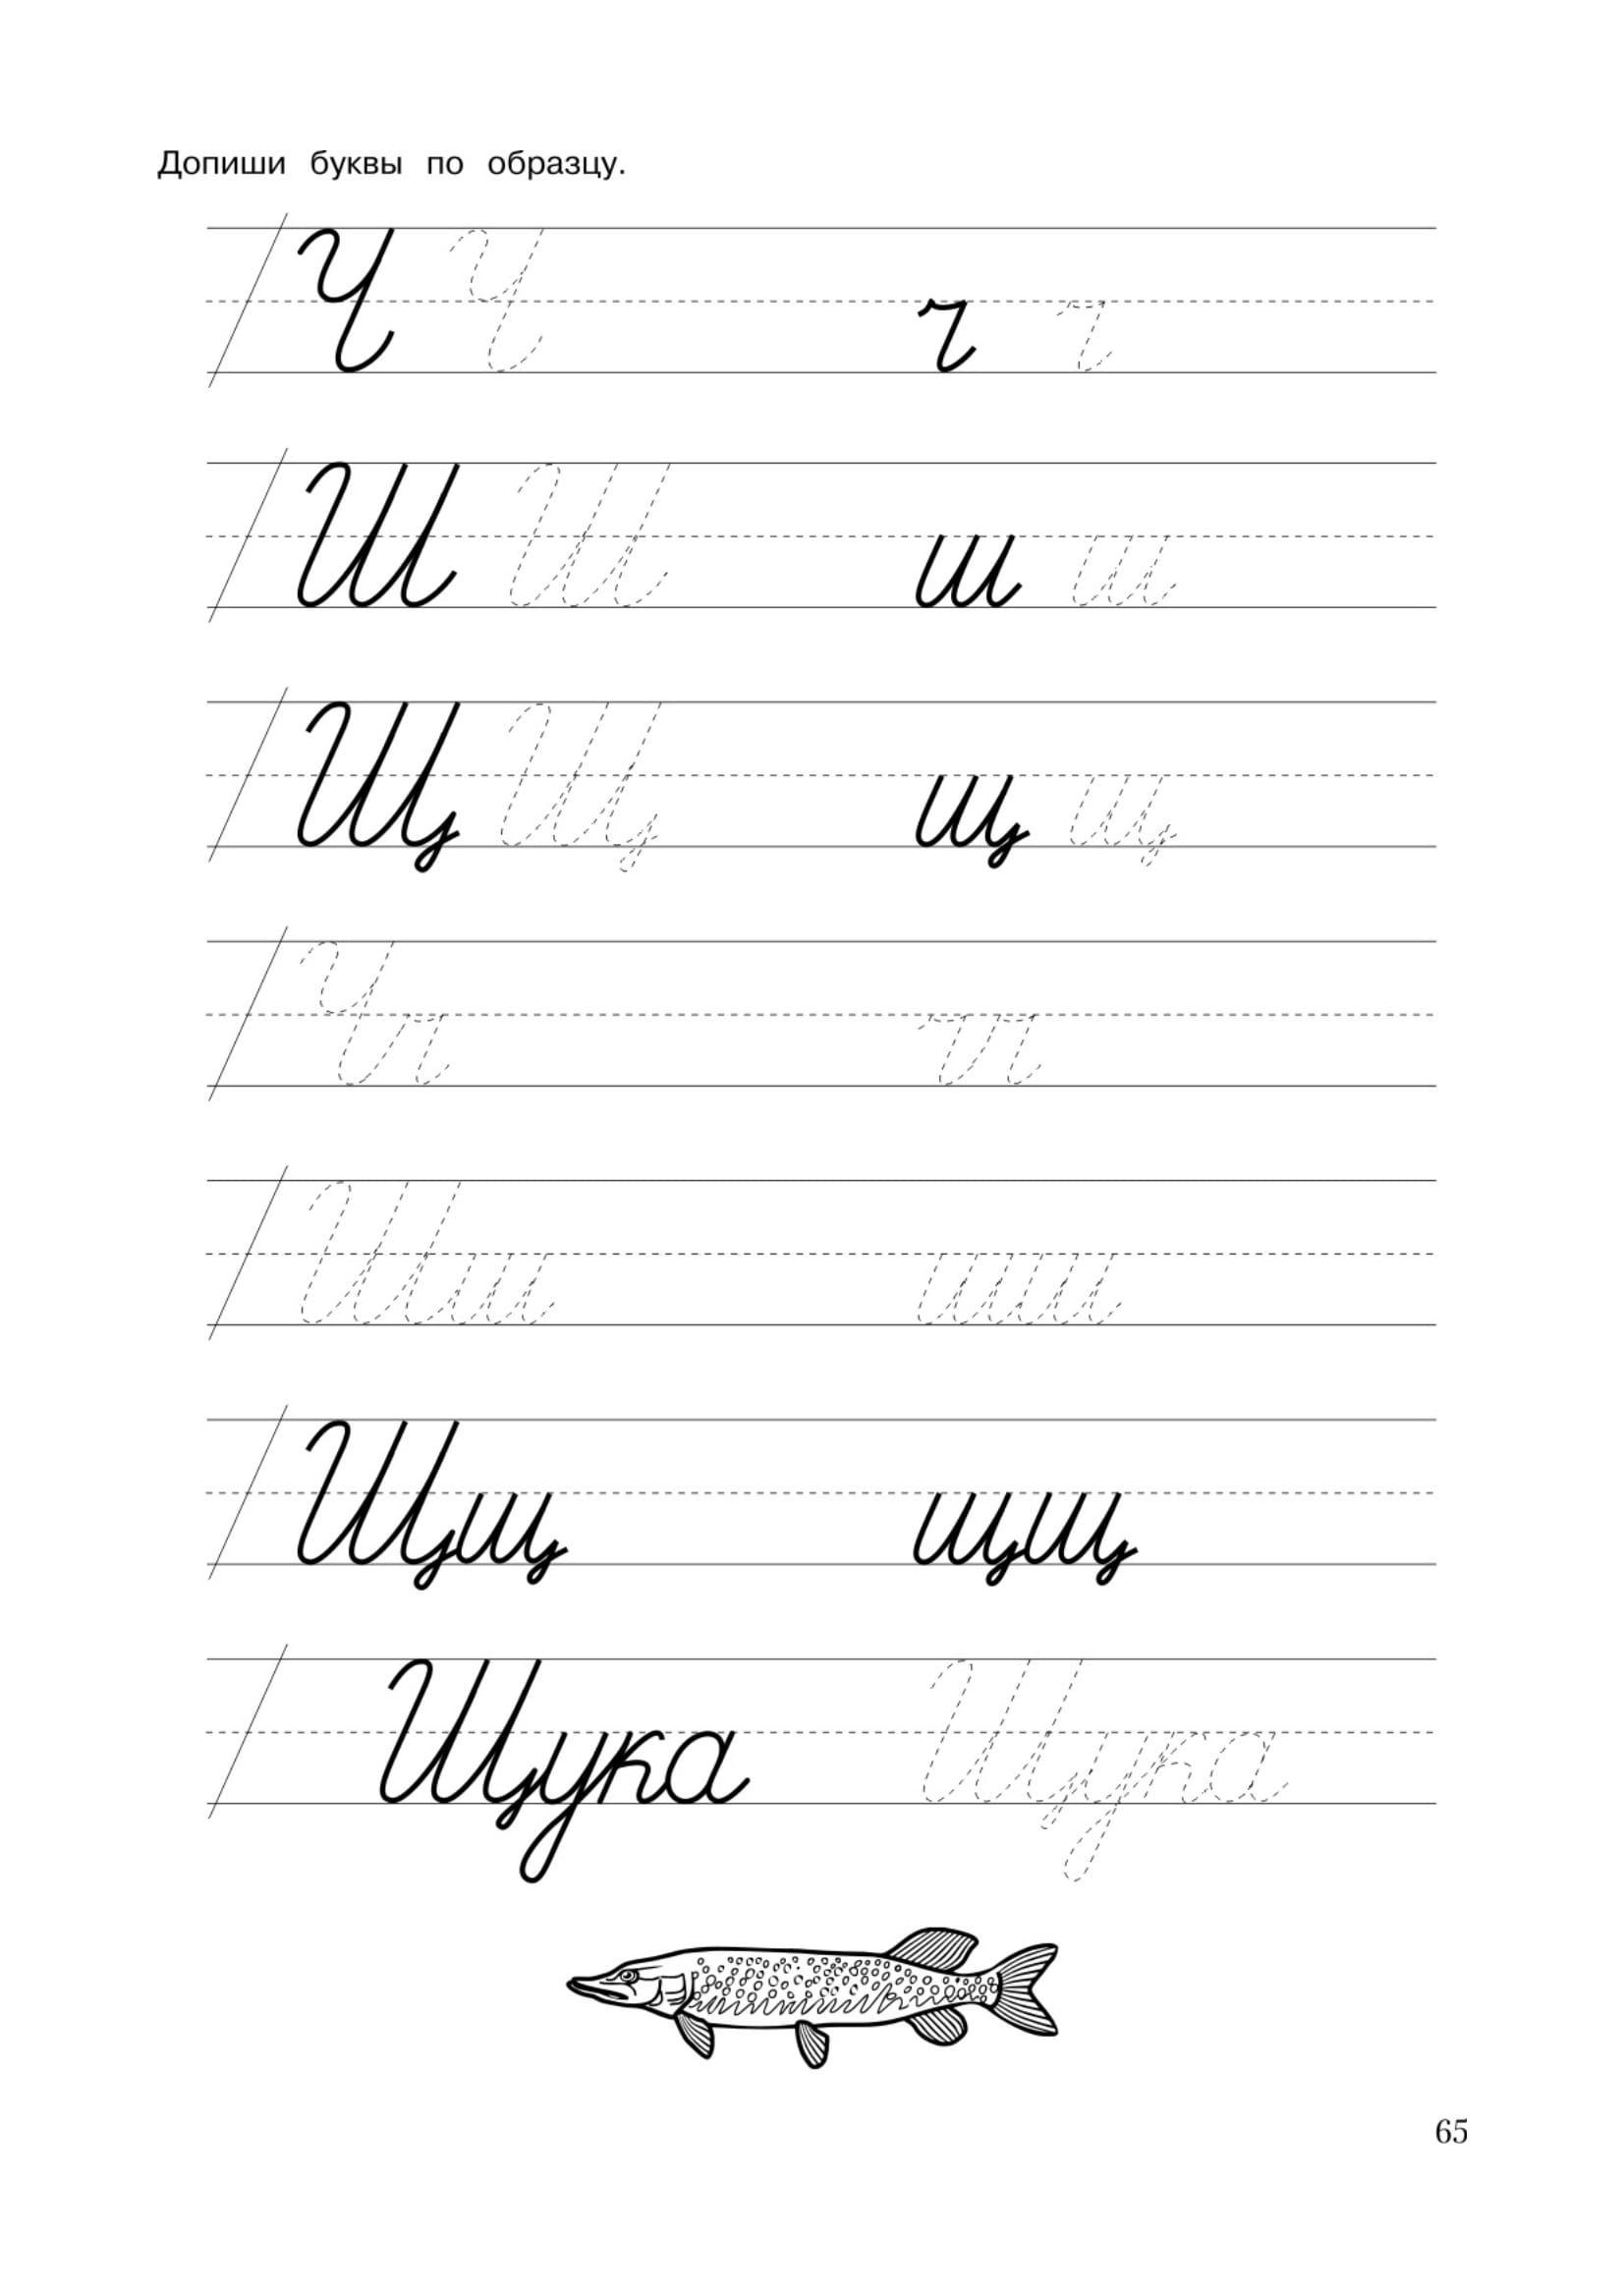 Допиши буквы по образцу.
Ч Ч ч ч
Ш Ш ш ш
Щ Щ щ щ
Чч чч
Шш шш
Щщ щщ
Щука Щука
65